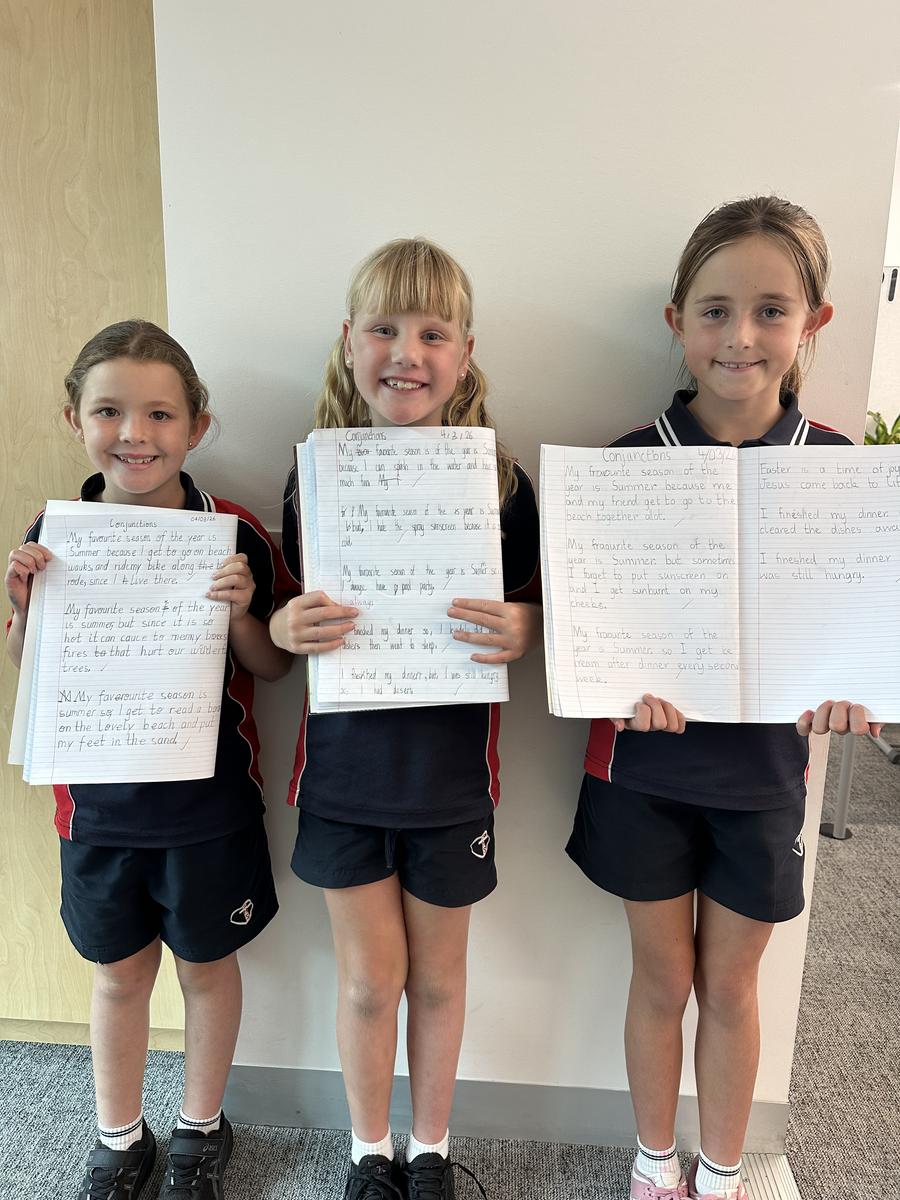 Conjunctions 04/03/26
My favourite season of the year is
Summer because I get to go on beach
wauks and ride my bike along the b
rode, since I live there.
My favourite season of the year
is summer but since it is so
hot it can cauce to meny
fires that hurt our
trees.
My favourite season is
summer so I get to read a
on the lovely beach and put
my feet in the sand.
Conjunctions 4/3/26
My favourite season of the year is
because I can in the water and
much fun
My favourite season of the year is
I hate the spray sunscreen because it
cold.
My favourite season of the year is so
I have pool partys.
always
finished my dinner so, I
then went to sleep.
my dinner, but I was still hungry
so, I had
Conjunctions 4/03/2
My season of the
year is Summer because me
and my friend get to go to the
beach together alot.
My season of the
year is Summer. but sometimes
I forget to put sunscreen on
and I get sunburnt on my
cheeks.
My season of the
year is Summer. so I get ice
cream after dinner every second
week.
Easter is a time of
Jesus come back to
I fineshed my dinner
cleared the dishes
I fineshed my dinner
was still hungry.